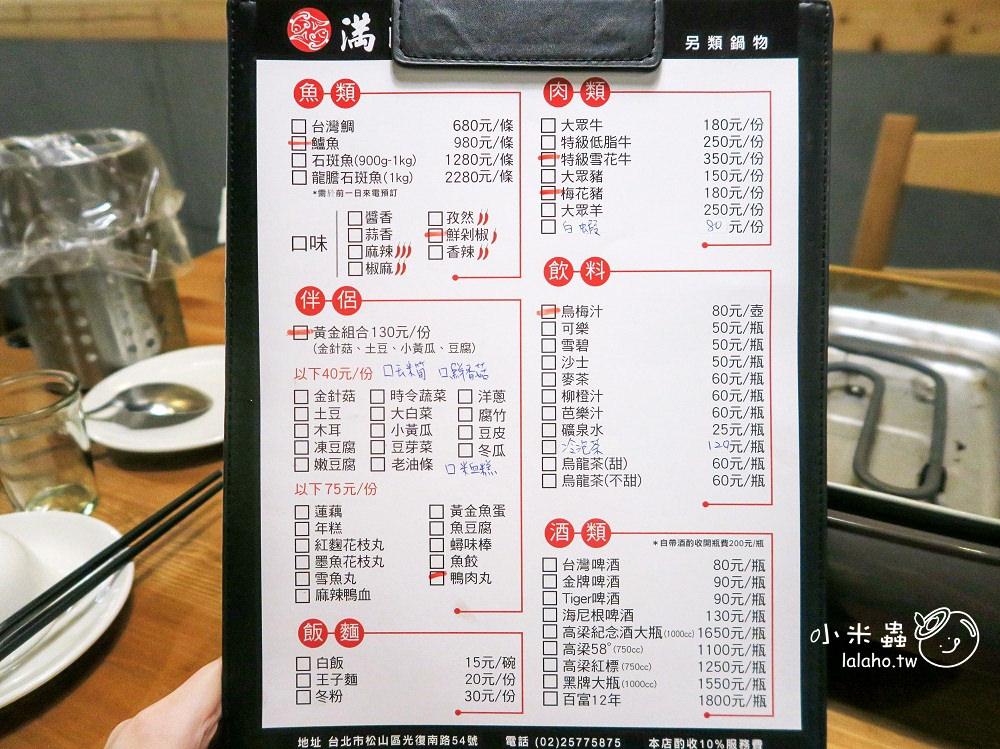 滿
另類鍋物
魚類
台灣鯛 680元/條
鱸魚 980元/條
石斑魚(900g-1kg) 1280元/條
龍膽石斑魚(1kg) 2280元/條
*需於前一日來電預訂
口味
醬香
蒜香
麻辣
椒麻
孜然
鮮剁椒
香辣
伴侶
黃金組合130元/份
(金針菇、土豆、小黃瓜、豆腐)
以下40元/份 鮮香菇
金針菇 時令蔬菜 洋蔥
土豆 大白菜 腐竹
木耳 小黃瓜 豆皮
凍豆腐 豆芽菜 冬瓜
嫩豆腐 老油條 米血糕
以下75元/份
蓮藕
年糕
紅麴花枝丸
墨魚花枝丸
雪魚丸
麻辣鴨血
黃金魚蛋
魚豆腐
蟳味棒
魚餃
鴨肉丸
飯麵
白飯 15元/碗
王子麵 20元/份
冬粉 30元/份
肉類
大眾牛 180元/份
特級低脂牛 250元/份
特級雪花牛 350元/份
大眾豬 150元/份
梅花豬 180元/份
大眾羊 250元/份
白蝦 80元/份
飲料
烏梅汁 80元/壺
可樂 50元/瓶
雪碧 50元/瓶
沙士 50元/瓶
麥茶 60元/瓶
柳橙汁 60元/瓶
芭樂汁 60元/瓶
礦泉水 25元/瓶
冷泡茶 120元/瓶
烏龍茶(甜) 60元/瓶
烏龍茶(不甜) 60元/瓶
酒類
*自帶酒酌收開瓶費200元/瓶
台灣啤酒 80元/瓶
金牌啤酒 90元/瓶
Tiger啤酒 90元/瓶
海尼根啤酒 130元/瓶
高梁紀念酒大瓶(1000cc) 1650元/瓶
高梁58°(750cc) 1100元/瓶
高梁紅標(750cc) 1250元/瓶
黑牌大瓶(1000cc) 1550元/瓶
百富12年 1800元/瓶
地址 台北市松山區光復南路54號 電話 (02)25775875 本店酌收10%服務費
小米蟲
lalaho.tw